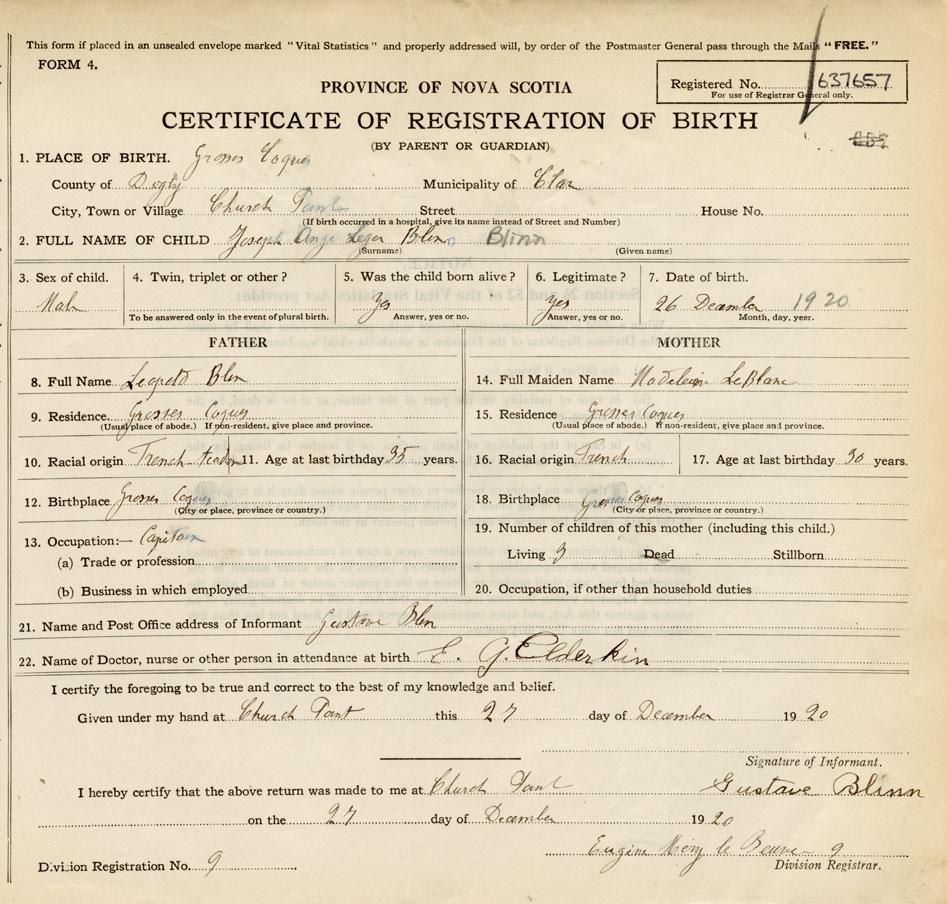 This form if placed in an unsealed envelope marked "Vital Statistics" and properly addressed will, by order of the Postmaster General pass through the Mails "FREE."
FORM 4.
Registered No. 637657
For use of Registrar General only.
PROVINCE OF NOVA SCOTIA
CERTIFICATE OF REGISTRATION OF BIRTH
(BY PARENT OR GUARDIAN)
1. PLACE OF BIRTH. Grosses Coques
County of Digby Municipality of Clare
City, Town or Village Church Point Street House No.
(If birth occurred in a hospital, give its name instead of Street and Number)
2. FULL NAME OF CHILD Joseph Ange Leger Blin Blinn
(Surname) (Given name)
3. Sex of child. 4. Twin, triplet or other? 5. Was the child born alive? 6. Legitimate? 7. Date of birth.
Male Yes Yes 26 December 1920
To be answered only in the event of plural birth. Answer, yes or no. Answer, yes or no. Month, day, year.
FATHER
8. Full Name Leopold Blin
9. Residence Grosses Coques
(Usual place of abode.) If non-resident, give place and province.
10. Racial origin French 11. Age at last birthday 35 years.
12. Birthplace Grosses Coques
(City or place, province or country.)
13. Occupation:— Capitain
(a) Trade or profession
(b) Business in which employed
MOTHER
14. Full Maiden Name Madeleine LeBlanc
15. Residence Grosses Coques
(Usual place of abode.) If non-resident, give place and province.
16. Racial origin French 17. Age at last birthday 30 years.
18. Birthplace Grosses Coques
(City or place, province or country.)
19. Number of children of this mother (including this child.)
Living Dead Stillborn
20. Occupation, if other than household duties
21. Name and Post Office address of Informant Gustave Blin
22. Name of Doctor, nurse or other person in attendance at birth E. G. Elderkin
I certify the foregoing to be true and correct to the best of my knowledge and belief.
Given under my hand at Church Point this 27 day of December 1920
Signature of Informant.
I hereby certify that the above return was made to me at Church Point Gustave Blinn
on the 27 day of December 1920
Eugine 9
Division Registration No. 9 Division Registrar.